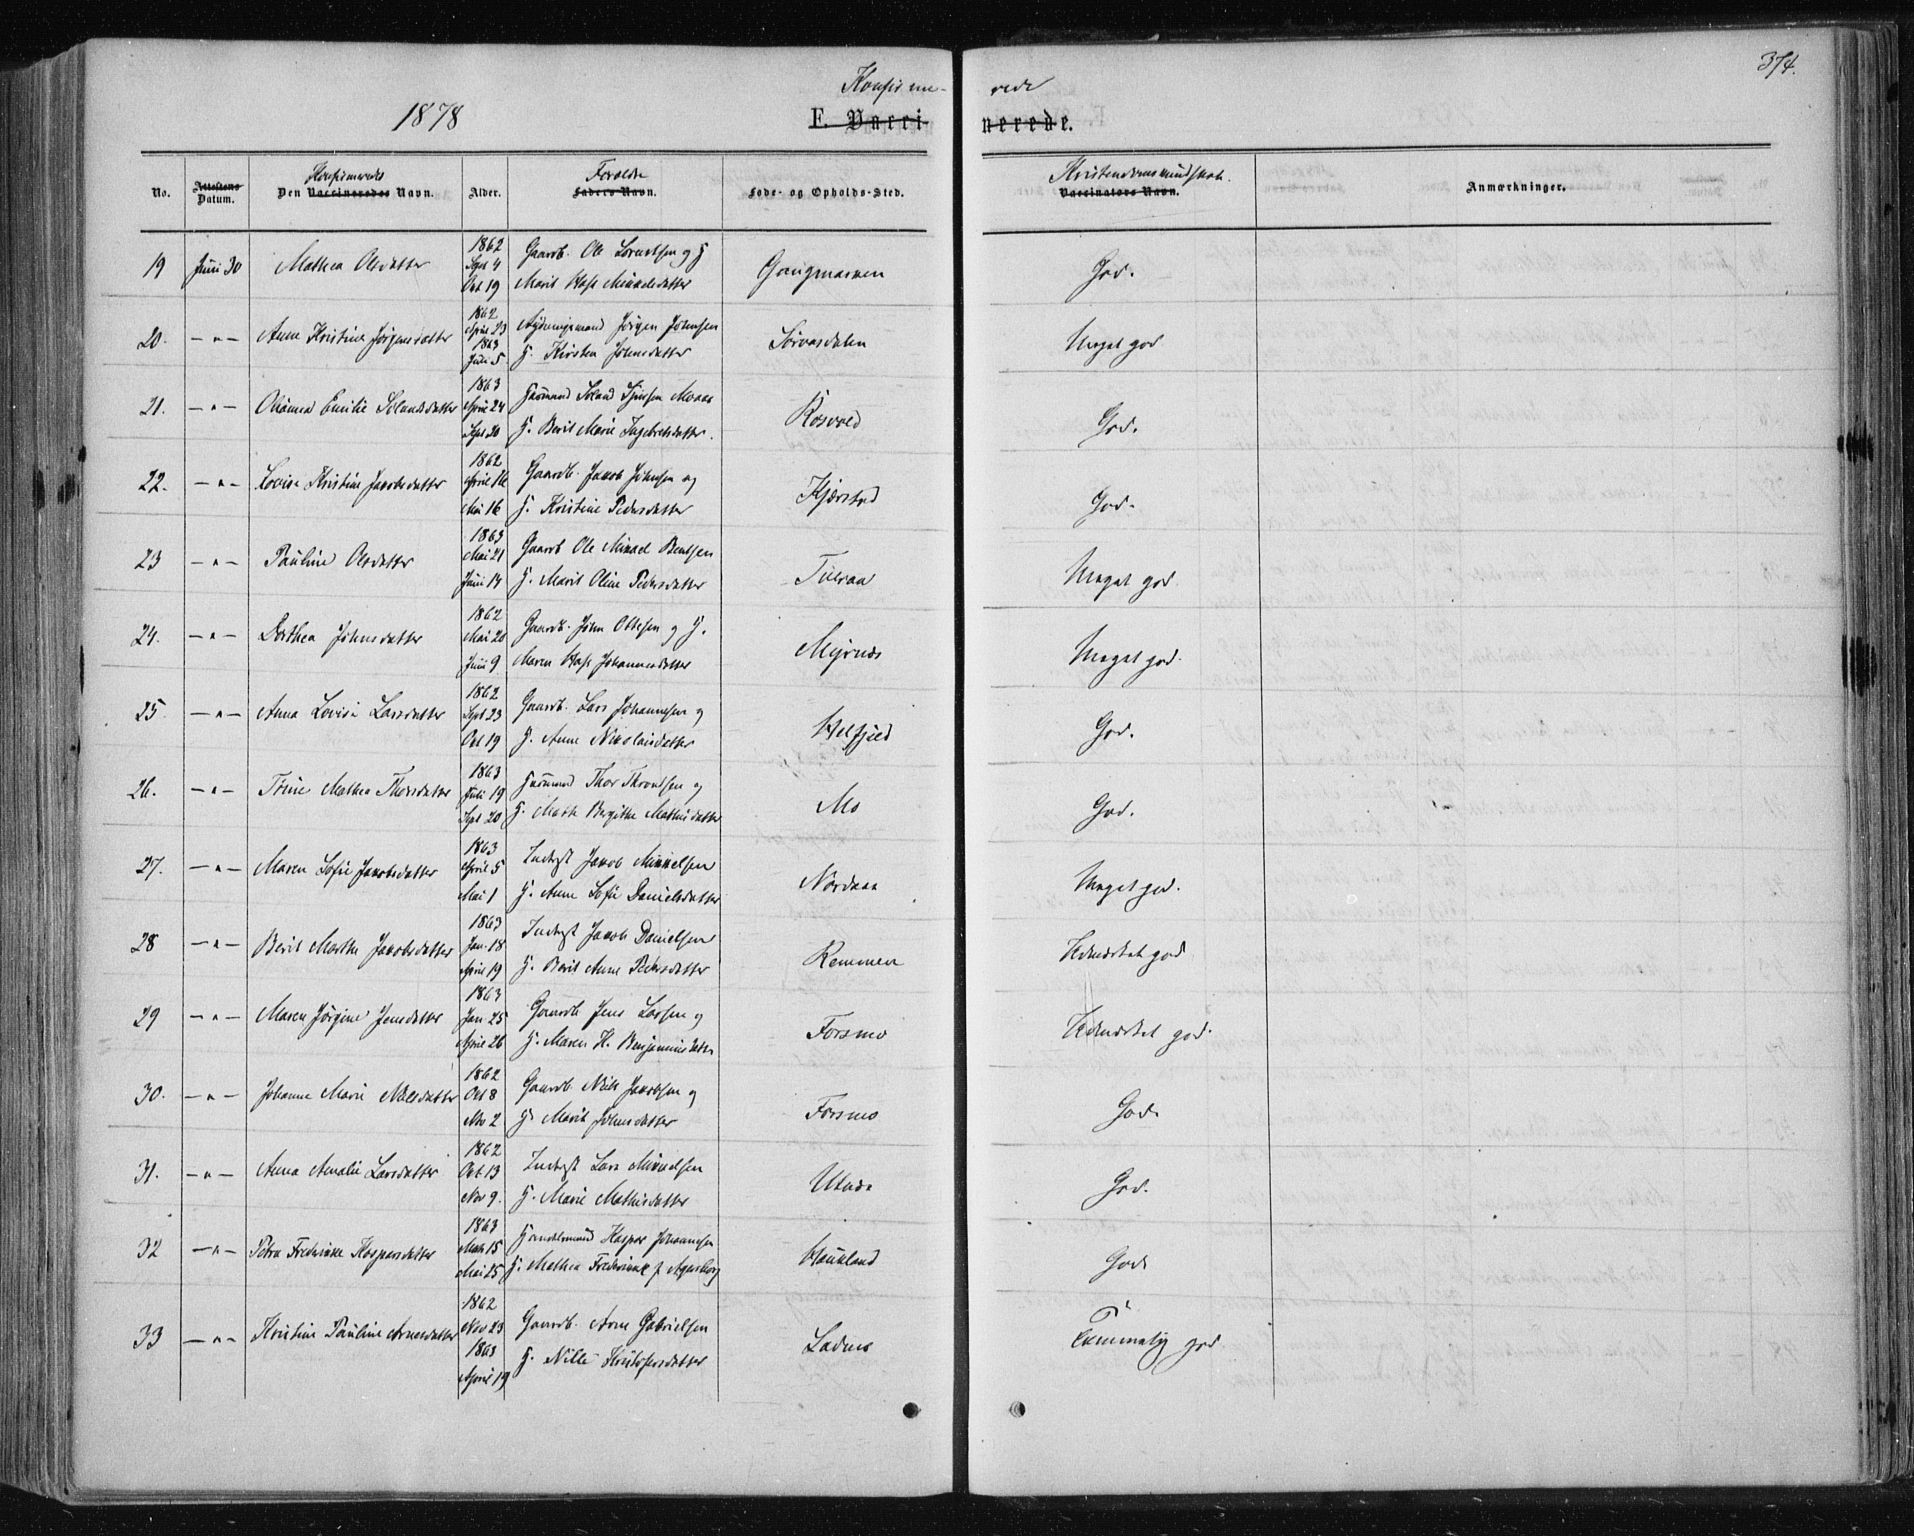 374.
Konfirme- rede
1878
F. Vaccinerede.
No. Attestens Datum. Konfirmerede Den Vaccineredes Navn. Alder. Forældre Faders Navn. Føde- og Opholds-Sted. Kristendomskundskab. Vaccinators Navn. Anmærkninger.
1862
19 Juni 30 Mathea Olsdatter Sept 4 Gaardb. Ole Lorentsen og H. Gangmarken God.
Oct 19 Marit Kast. Mikkelsdatter
1862
20. — " — Anne Kristine Jørgensdatter April 23 Rydningsmand Jørgen Johnsen Sørvasdalen Meget god
1863
Juli 5 H. Kirsten Johnsdatter
1863
21. — " — Emilie April 24 Husmand Rosvold God.
Sept 20 H. Berit Marie Ingebretsdatter.
1862
22. — " — Lovise Kristine Jakobsdatter April 16 Gaardb. Jakob Johnsen og Kjærstad God.
Mai 16 H. Kristine Pedersdatter
1863
23 — " — Pauline Olsdatter Mai 21 Gaardb Ole Mikael Bentsen Tueraa Meget god
Juni 14 H. Marit Oline Pedersdatter
1862
24. — " — Dorthea Johnsdatter Mai 20 Gaardb. John Ottesen og H. Myrnes Meget god.
Juni 9 Maren Kast. Johannesdatter
1862
25 — " — Anna Lovise Larsdatter Sept 23 Gaardb. Lars Johannesen og Helfjeld God.
Oct 19 H. Anne Nikolaisdatter
1863
26. — " — Trine Mathea Thorsdatter Juli 19 Husmand Thor Throndsen og Mo God.
Sept 20 H. Marth Bergithe Mathisdatter
1863
27. — " — Maren Sofie Jakobsdatter April 5 Inderst Jakob Mikkelsen Nordaas Meget god.
Mai 1 H. Anne Sofie Danielsdatter
1863
28 — " — Berit Marthe Jakobsdatter Jan. 18 Inderst Jakob Danielsen Remmen Udmærket god
April 19 H. Berit Anne Pedersdatter
1863
29 — " — Maren Jørgine Jensdatter Jan 25 Gaardb Jens Larsen og Forsmo Udmærket god.
April 26 H. Maren H. Benjaminsdatter
1862
30. — " — Johanne Marie Nilsdatter Oct 8 Gaardb. Nils Jakobsen og Forsmo God.
Nov 2 H. Marit Johnsdatter
1862
31. — " — Anna Amalie Larsdatter Oct 13 Inderst Lars Mikkelsen Utnes God.
Nov 9. H. Marie Mathisdatter
1863
32 — " — Petra Fredrikke Kaspersdatter Mart 15 Handelsmand Kasper Johannesen Haukland God.
Mai 25 H. Mathea Fredrikke f. Agersborg
1862
33 — " — Kristine Pauline Arnesdatter Nov 23 Gaardb. Arne Gabrielsen Ladmo Temmelig god
1863
April 19 H. Nille Kristofersdatter